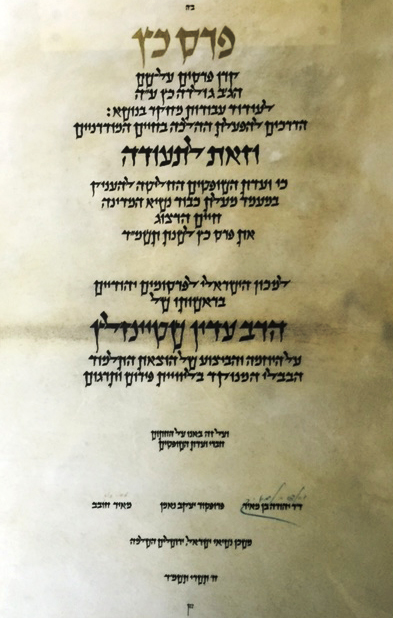 בה
פרס כץ
קרן פרסים על-שם
הגב גולדה כץ ע״ה
לעידוד עבודות מחקר בנושא:
הדרכים להפעלת ההלכה בחיים המודרניים
וזאת לתעודה
כי ועדת השופטים החליטה להעניק
במעמד מעלת כבוד נשיא המדינה
חיים הרצוג
את פרס כץ לשנת תשמ״ד
למכון הישראלי לפרסומים יהודיים
בראשותו של
הרב עדין שטיינזלץ
על היוזמה והביצוע של הוצאת התלמוד
הבבלי המנוקד בליווית פירוש ותרגום
ועל זה באנו על החתום
חברי ועדת השופטים
דר יהודה בן מאיר פרופסור יעקב נאמן מאיר חובב
משכן נשיאי ישראל, ירושלים הבירה
תשרי תשמ״ד